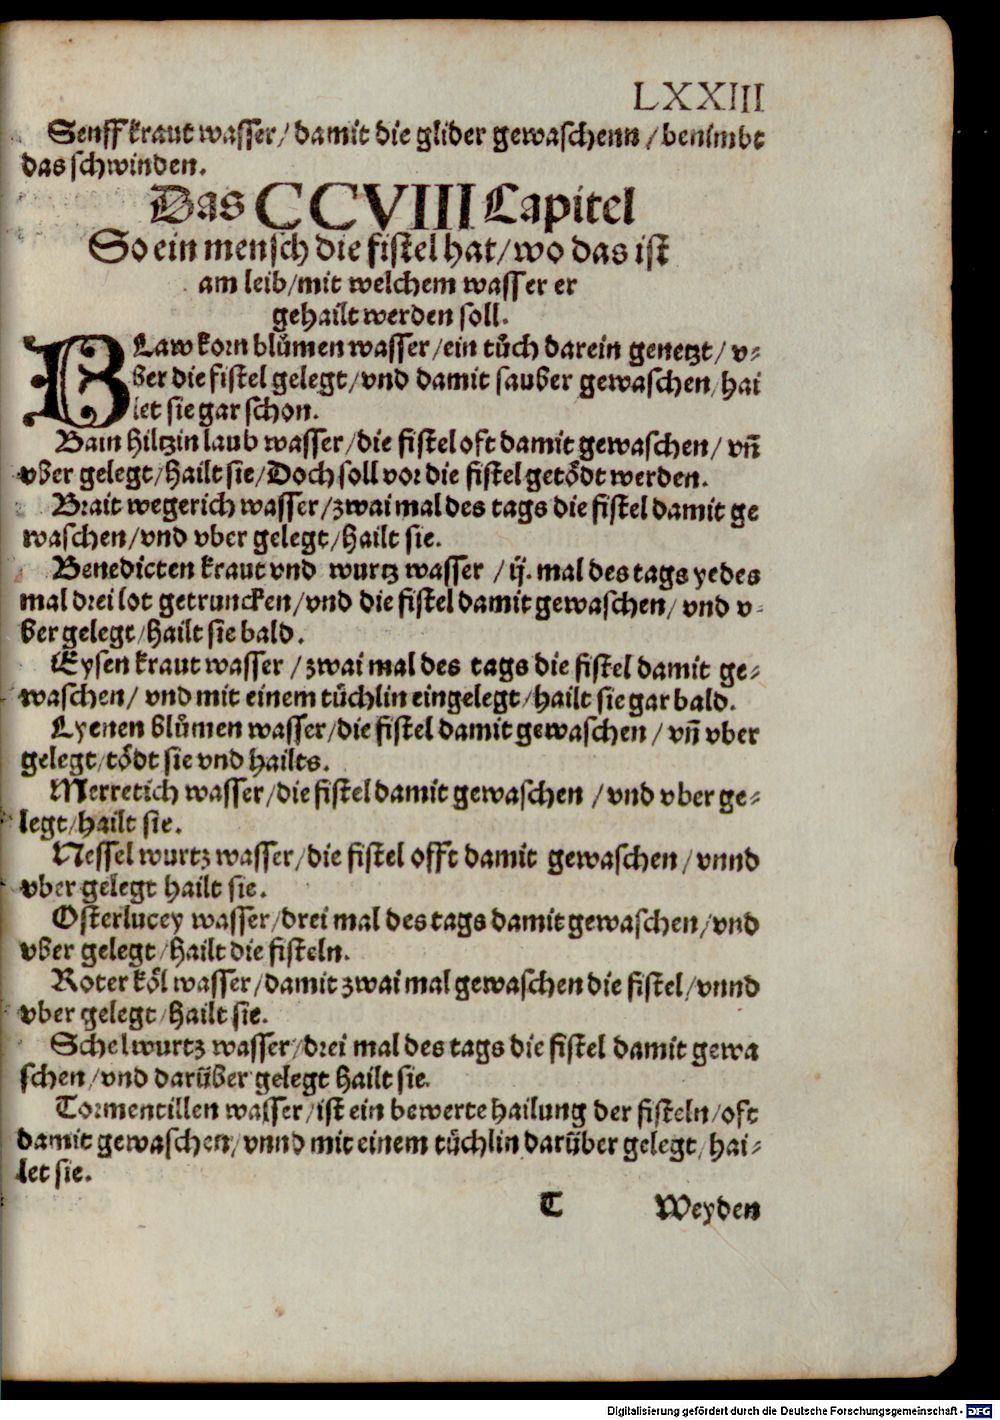 LXXIII
Senff kraut wasser/ damit die glider gewaschenn/ benimbt
das schwinden.
Das CCVIII Capitel
So ein mensch die fistel hat/ wo das ist
am leib/ mit welchem wasser er
gehailt werden soll.
BLaw korn blůmen wasser/ ein tůch darein genetzt/ v-
ber die fistel gelegt/ vnd damit sauber gewaschen/ hai
let sie gar schon.
Bain hiltzin laub wasser/ die fistel oft damit gewaschen/ vñ
vber gelegt/ hailt sie/ Doch soll vor die fistel getödt werden.
Brait wegerich wasser/ zwai mal des tags die fistel damit ge
waschen/ vnd vber gelegt/ hailt sie.
Benedicten kraut vnd wurtz wasser / ij. mal des tags yedes
mal drei lot getruncken/ vnd die fistel damit gewaschen/ vnd v-
ber gelegt/ hailt sie bald.
Eysen kraut wasser / zwai mal des tags die fistel damit ge-
waschen/ vnd mit einem tüchlin eingelegt/ hailt sie gar bald.
Lyenen blůmen wasser/ die fistel damit gewaschen / vñ vber
gelegt/ tödt sie vnd hailts.
Merretich wasser/ die fistel damit gewaschen / vnd vber ge-
legt/ hailt sie.
Nessel wurtz wasser/ die fistel offt damit gewaschen/ vnnd
vber gelegt hailt sie.
Osterlucey wasser/ drei mal des tags damit gewaschen/ vnd
vber gelegt/ hailt die fisteln.
Roter köl wasser/ damit zwai mal gewaschen die fistel/ vnnd
vber gelegt/ hailt sie.
Schelwurtz wasser/ drei mal des tags die fistel damit gewa
schen/ vnd darüber gelegt hailt sie.
Tormentillen wasser/ ist ein bewerte hailung der fisteln/ oft
damit gewaschen/ vnnd mit einem tüchlin darüber gelegt/ hai-
let sie.
T Weyden
Digitalisierung gefördert durch die Deutsche Forschungsgemeinschaft - DFG